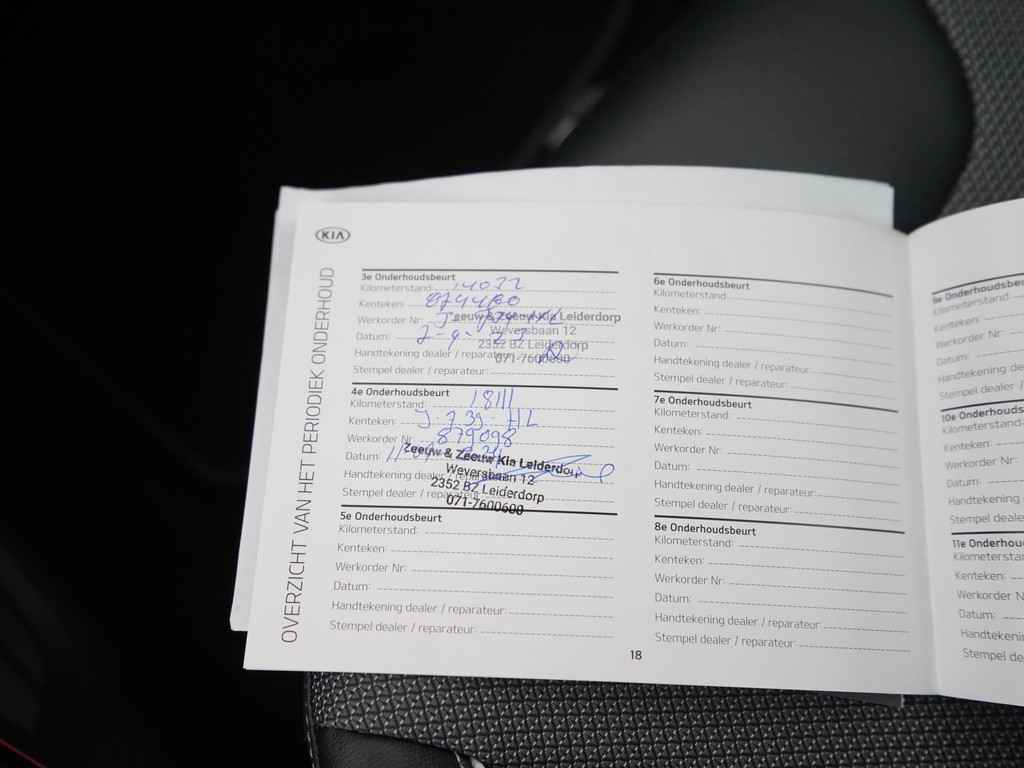 KIA
OVERZICHT VAN HET PERIODIEK ONDERHOUD
3e Onderhoudsbeurt
Kilometerstand: 14032
Kenteken:
Werkorder Nr:
Zeeuw & Zeeuw Kia Leiderdorp
Weversbaan 12
Datum:
2352 BZ Leiderdorp
Handtekening dealer / reparateur:
071-7600600
Stempel dealer / reparateur:
4e Onderhoudsbeurt
Kilometerstand: 18111
Kenteken: J-739-HL
Werkorder Nr: 879098
Zeeuw & Zeeuw Kia Leiderdo
Datum:
Weversbaan 12
Handtekening dealer / reparateur:
2352 BZ Leiderdorp
Stempel dealer / reparateur:
071-7600600
5e Onderhoudsbeurt
Kilometerstand:
Kenteken:
Werkorder Nr:
Datum:
Handtekening dealer / reparateur:
Stempel dealer / reparateur:
6e Onderhoudsbeurt
Kilometerstand:
Kenteken:
Werkorder Nr:
Datum:
Handtekening dealer / reparateur:
Stempel dealer / reparateur:
7e Onderhoudsbeurt
Kilometerstand:
Kenteken:
Werkorder Nr:
Datum:
Handtekening dealer / reparateur:
Stempel dealer / reparateur:
8e Onderhoudsbeurt
Kilometerstand:
Kenteken:
Werkorder Nr:
Datum:
Handtekening dealer / reparateur:
Stempel dealer / reparateur:
18
9e Onderhoudsbe
Kilometerstand:
Kenteken:
Werkorder Nr:
Datum:
Handtekening de
Stempel dealer /
10e Onderhouds
Kilometerstand:
Kenteken:
Werkorder Nr:
Datum:
Handtekening
Stempel deale
11e Onderhou
Kilometerstan
Kenteken:
Werkorder N
Datum:
Handtekeni
Stempel de